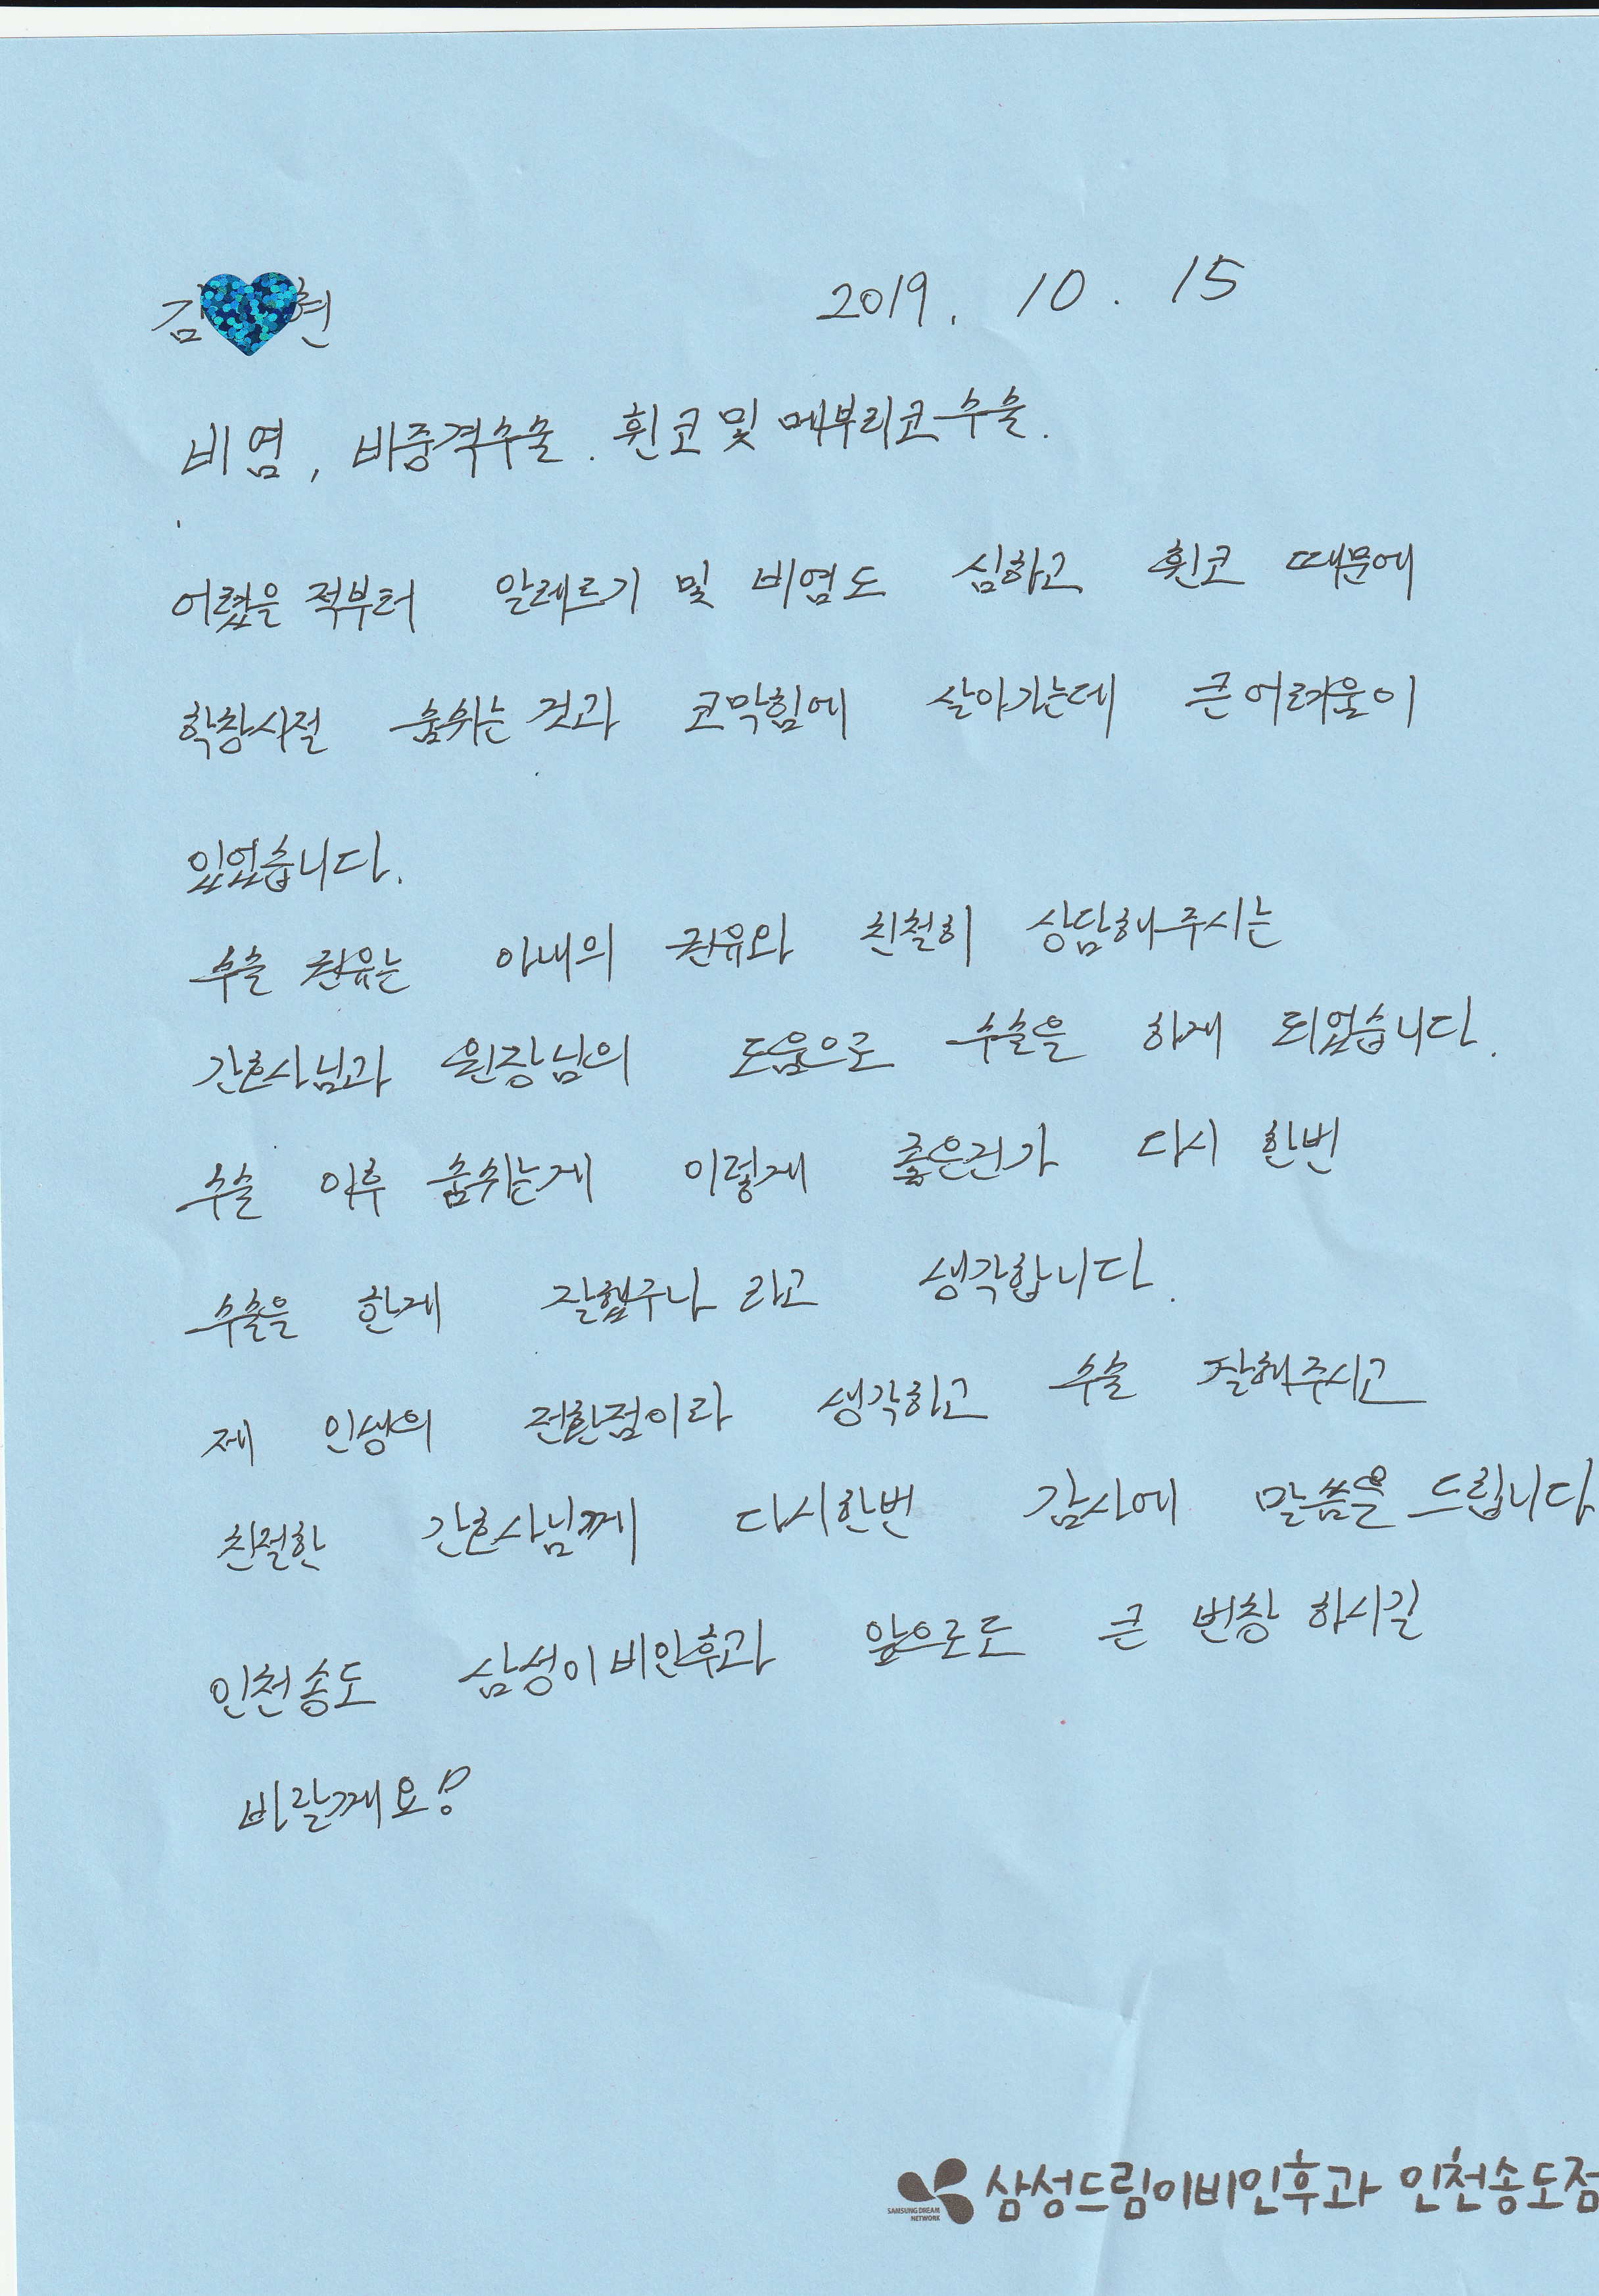 김 현 2019. 10. 15
비염, 비중격수술. 휜코 및 메부리코 수술.
어렸을 적부터 알레르기 및 비염도 심하고 휜코 때문에
학창시절 숨쉬는 것과 코막힘에 살아가는데 큰 어려움이
있었습니다.
수술 권유는 아내의 권유와 친절히 상담해주시는
간호사님과 원장님의 도움으로 수술을 하게 되었습니다.
수술 이후 숨쉬는게 이렇게 좋은건가 다시 한번
수술을 한게 잘했구나 라고 생각합니다.
제 인생의 전환점이라 생각하고 수술 잘해주시고
친절한 간호사님께 다시한번 감사에 말씀을 드립니다
인천송도 삼성이비인후과 앞으로도 큰 번창 하시길
바랄께요!
SAMSUNG DREAM NETWORK 삼성드림이비인후과 인천송도점